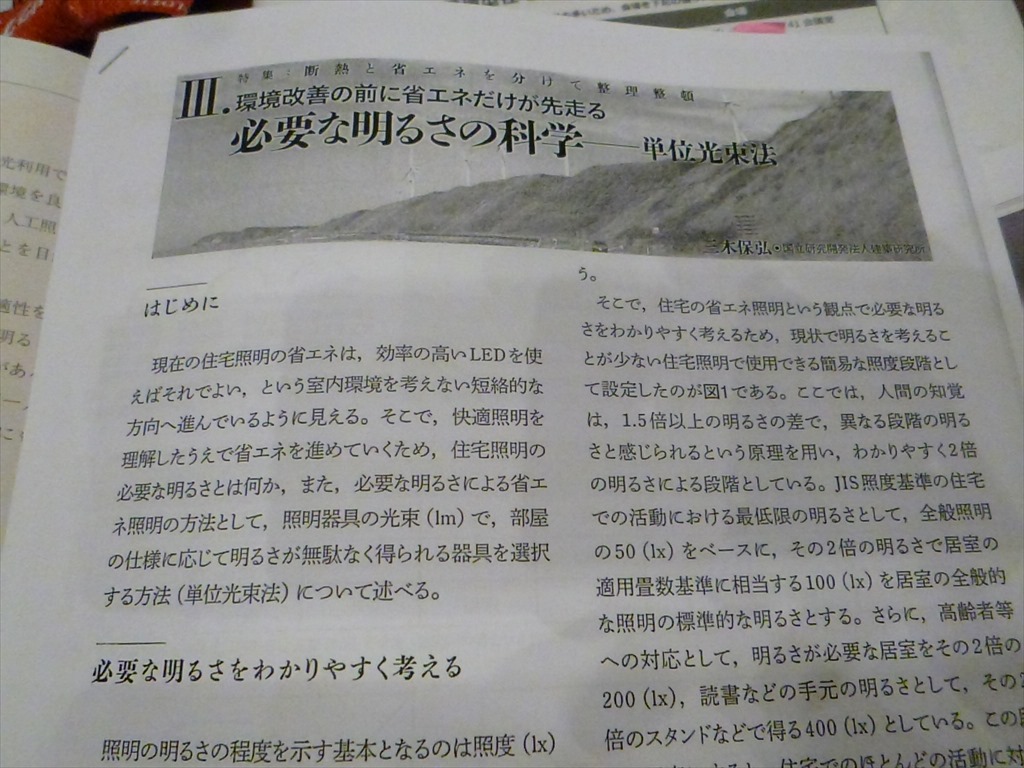 41 会議室
光利用で
環境を良
人工照
とを目
適性を
明る
があ
特集：断熱と省エネを分けて整理整頓
III.環境改善の前に省エネだけが先走る
必要な明るさの科学——単位光束法
三木保弘・国立研究開発法人建築研究所
はじめに
現在の住宅照明の省エネは，効率の高いLEDを使
えばそれでよい，という室内環境を考えない短絡的な
方向へ進んでいるように見える。そこで，快適照明を
理解したうえで省エネを進めていくため，住宅照明の
必要な明るさとは何か，また，必要な明るさによる省エ
ネ照明の方法として，照明器具の光束（lm）で，部屋
の仕様に応じて明るさが無駄なく得られる器具を選択
する方法（単位光束法）について述べる。
必要な明るさをわかりやすく考える
照明の明るさの程度を示す基本となるのは照度（lx）
う。
そこで，住宅の省エネ照明という観点で必要な明る
さをわかりやすく考えるため，現状で明るさを考えるこ
とが少ない住宅照明で使用できる簡易な照度段階とし
て設定したのが図1である。ここでは，人間の知覚
は，1.5倍以上の明るさの差で，異なる段階の明る
さと感じられるという原理を用い，わかりやすく2倍
の明るさによる段階としている。JIS照度基準の住宅
での活動における最低限の明るさとして，全般照明
の50（lx）をベースに，その2倍の明るさで居室の
適用畳数基準に相当する100（lx）を居室の全般的
な照明の標準的な明るさとする。さらに，高齢者等
への対応として，明るさが必要な居室をその2倍の
200（lx），読書などの手元の明るさとして，その2
倍のスタンドなどで得る400（lx）としている。この
住宅でのほとんどの活動に対